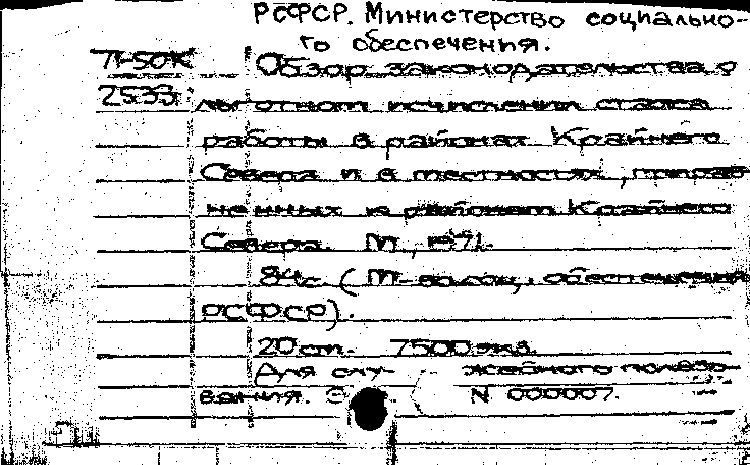 РСФСР. Министерство социально-
го обеспечения.
П-50К Обзор законодательства о
2533 льготном исчислении стажа
работы в районах Крайнего
Севера и в местностях, прирав-
ненных к районам Крайнего
Севера. М., 1971.
84с. (М-во соц. обеспечения
РСФСР).
20см. 7500экз.
Для слу- жебного пользо-
вания. Э N 000007.